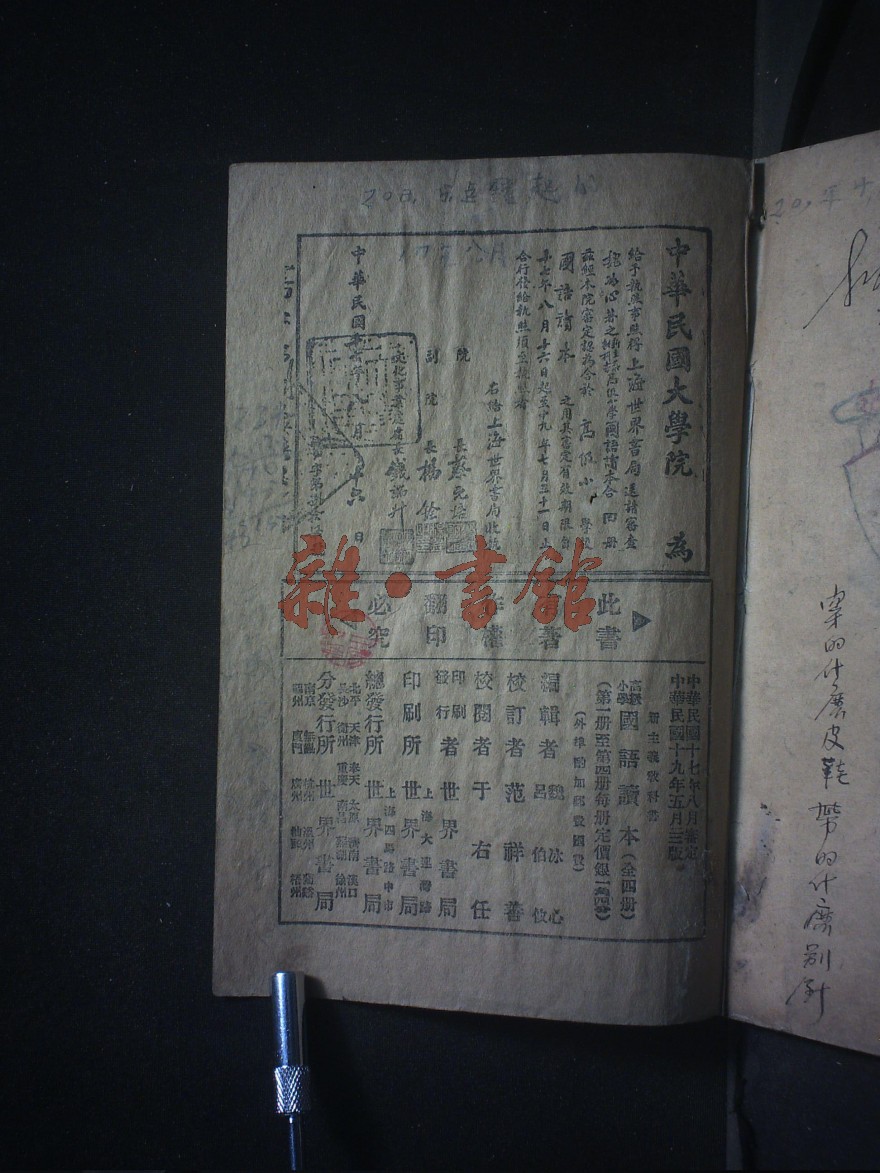 中華民國大學院 為
給予執照事照得上海世界書局送請審查
魏冰心著之 高級小學國語讀本合四册
茲經本院審定認為合於 高級小學校
國語讀本 之用其審定有效期限自
十七年八月十六日起至十九年七月三十一日止
合行發給執照須至執照者
右給上海世界書局收執
院長 蔡元培
副院長 楊銓
文化事業處處長 錢端升
中華民國十七年八月十六日
此書有著作權翻印必究
中華民國十七年八月審定
中華民國十九年五月三版
新主義教科書
高級小學 國語讀本 (全四册)
(第一册至第四册每册定價銀一角四分)
(外埠酌加郵費匯費)
編輯者 魏冰心 呂伯攸
校訂者 范祥善
校閱者 于右任
印刷發行者 世界書局
上海大連灣路
印刷所 世界書局
上海四馬路中市
總發行所 世界書局
北平 天津 奉天 太原 濟南 漢口
長沙 衡州 重慶 南昌 蕪湖 徐州
分發行所 世界書局
南京 無錫 杭州 溫州
福州 廈門 廣州 汕頭 梧州
雜·書館
20年十
穿的什麽皮鞋 帶的什麽别針